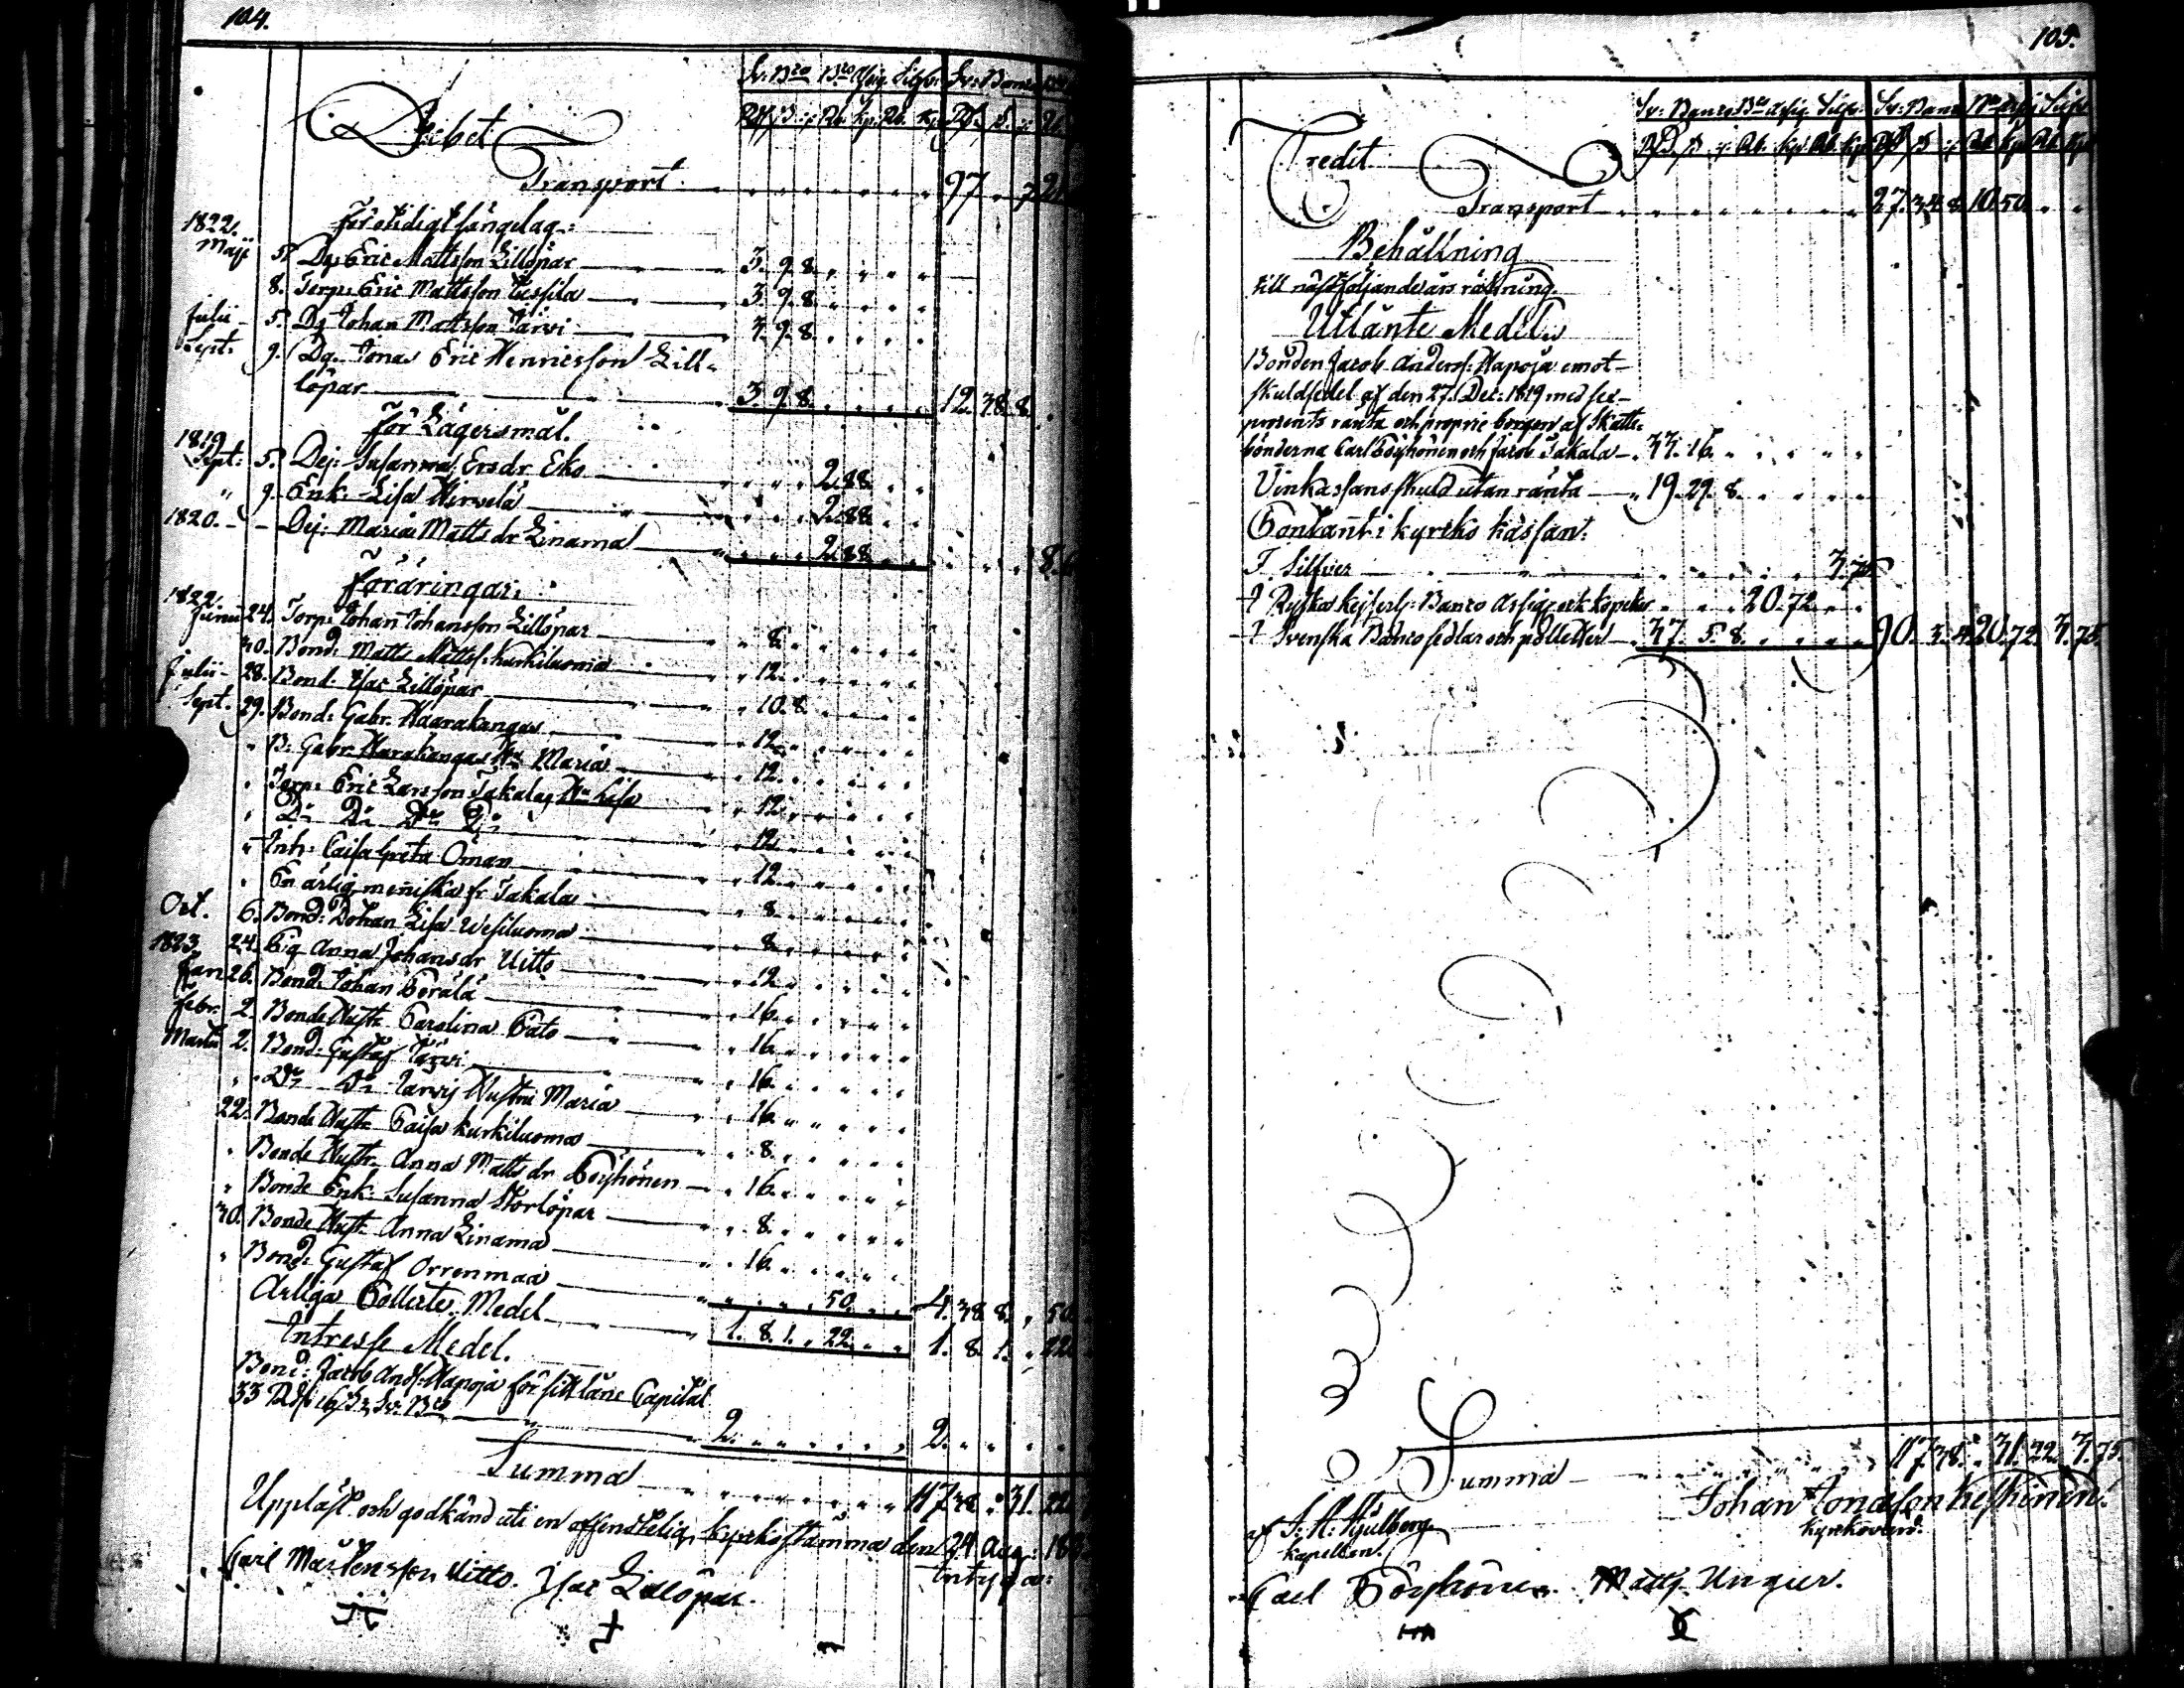 104.
Sv: Bco Bco Assig. Silfv. Sv: Banco
Rd ß rst Rb. kp. Rb. kp. Rd ß
Debet
Transport 97 „ 7 2
För otidigt sängelag:
1822. Maji 5. Dg: Eric Mattsson Lillöpar 3. 9. 8.
8. Torp: Eric Mattsson 3. 9. 8.
Julii 5. Dg Johan Mattsson Järvi 3. 9. 8.
Sept. 9. Dg. Jonas Eric Henricsson Lill-
löpar 3. 9. 8. 12. 38. 8.
För Lägersmål.
1819 Sept: 5. Dej: Susanna Ersdr Eko 2.88.
" 9. Enk: Lisa Hirvelä 2.88
1820. Dej: Maria Mattsdr Linama 2.88 8.
Föräringar.
1822 Junii 24. Torp: Johan Johansson Lillöpar 8.
30. Bond: Matts Mattss: Kurkiluoma 12.
Julii 28. Bond: Isac Lillöpar 10.8.
Sept. 29. Bond: Gabr. Haarakangas 12.
" B: Gabr: Harakangas Hu Maria 12.
" Torp: Eric Larsson Jakala Hu Lisa 12.
" Do Do Do Do 12.
" Inh: Caisa Greta Öman 12
" En ärlig meniska fr Jakala 8.
Oct. 6. Bond: Dottran Lisa Wesiluoma 8.
24. Pig Anna Johansdr Uitto 12.
1823 Jan 26. Bond: Johan Perälä 16.
Febr. 2. Bonde Hust: Carolina Cato 16.
Martii 2. Bond: Gustaf Järvi 16.
" Do Do Jarvij Hustru Maria 16.
22. Bonde Hust: Caisa Kurkiluoma 8.
" Bonde Hustr. Anna Mattsdr Pöyhönen 16.
" Bonde Enk: Susanna Storlöpar 8.
30. Bonde Hust: Anna Linama 16.
" Bond: Gustaf Orrenmaa 50. 4. 38. 8. 50
Årliga Collecte Medel 1. 8. 1. 22 1. 8. 1. 22
Intresse Medel.
Bond: Jacob And: Hapoja för sitt låne Capital
33 Rd 16 ß Sv: Bco 2. 2.
Summa 117 38 31. 22
Uppläst och godkänd uti en offentelig kyrkostämma den 24 Aug: 182
intyga:
Carl Mårtensson Uitto. Isac Lillöpar.
105.
Sv: Banco Bco Assig. Silfv: Sv: Banco Bco Assig Silfv
Rd ß rst Rb. kp. Rb. kp. Rd ß rst Rb kp Rb kp
Credit
Transport 27. 34. 8. 10.50.
Behållning
till nästföljande års räkning.
Utlånte Medel
Bonden Jacob Anders: Hapoja emot
skuldsedel af den 27. Dec: 1819 med sex
procents ränta och proprie borgen af Skatte-
bönderna Carl Pöyhönen och Jacob Jakala 33. 16.
Vinkassans skuld utan ränta 19. 29. 8.
Contant i kyrko kassan:
I Silfver 3.75
I Ryska Kejserl: Banco Assig och kopeker 20.72
I Svenska Banco sedlar och polletter 37. 5. 8. 90. 3. 4. 20.72. 3.75
Summa 117 38. 31. 22. 3.75.
af J: H: Hjulberg
kapellan.
Johan Jonasson Keskinen.
kyrkovärd.
Carl Pöyhönen. Matts Ungur.